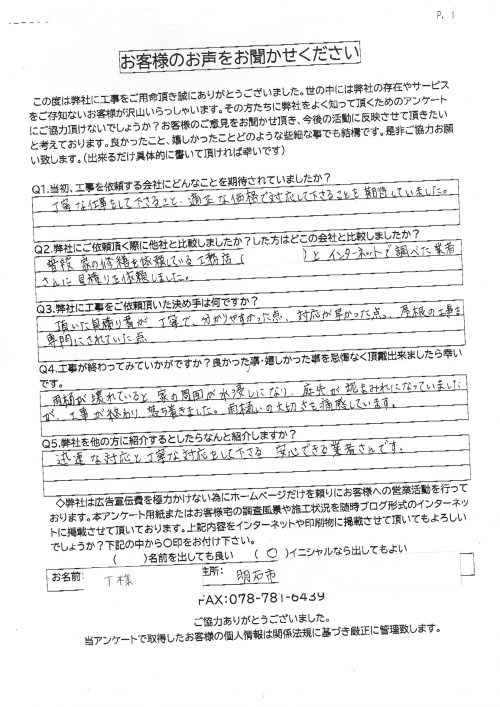 P. 1
お客様のお声をお聞かせください
この度は弊社に工事をご用命頂き誠にありがとうございました。世の中には弊社の存在やサービス
をご存知ないお客様が沢山いらっしゃいます。その方たちに弊社をよく知って頂くためのアンケート
にご協力頂けないでしょうか？お客様のご意見をお聞かせ頂き、今後の活動に反映させて頂きたい
と考えております。良かったこと、嬉しかったことどのような些細な事でも結構です。是非ご協力お願
い致します。（出来るだけ具体的に書いて頂ければ幸いです）
Q1.当初、工事を依頼する会社にどんなことを期待されていましたか？
丁寧な仕事をして下さること、適正な価格で対応して下さることを期待していました。
Q2.弊社にご依頼頂く際に他社と比較しましたか？した方はどこの会社と比較しましたか？
普段 家の修繕を依頼している工務店（　　　）とインターネットで調べた業者
さんに見積りを依頼しました。
Q3.弊社に工事をご依頼頂いた決め手は何ですか？
頂いた見積り書が丁寧で、分かりやすかった点、対応が早かった点、屋根の工事を
専門にされていた点
Q4.工事が終わってみていかがですか？良かった事・嬉しかった事を忌憚なく頂戴出来ましたら幸い
です。
雨樋が壊れていると家の周囲が水浸しになり、庭先が泥まみれになっていました
が、工事が終わり、落ち着きました。雨樋いの大切さを痛感しています。
Q5.弊社を他の方に紹介するとしたらなんと紹介しますか？
迅速な対応と丁寧な対応をして下さる 安心できる業者さんです。
◇弊社は広告宣伝費を極力かけない為にホームページだけを頼りにお客様への営業活動を行って
おります。本アンケート用紙またはお客様宅の調査風景や施工状況を随時ブログ形式のインターネッ
トに掲載させて頂いております。上記内容をインターネットや印刷物に掲載させて頂いてもよろしい
でしょうか？下記の中から〇印をお付け下さい。
（　　）名前を出しても良い　（ 〇 ）イニシャルなら出してもよい
お名前： T様　住所： 明石市
FAX:078-781-6439
ご協力ありがとうございました。
当アンケートで取得したお客様の個人情報は関係法規に基づき厳正に管理致します。